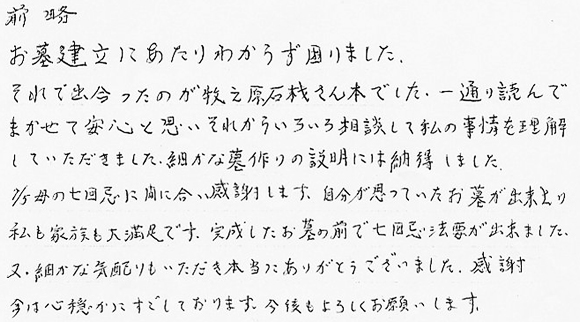 前略
お墓建立にあたりわからず困りました.
それで出合ったのが牧之原石材さん本でした.一通り読んで
まかせて安心と思いそれからいろいろ相談して私の事情を理解
していただきました.細かな墓作りの説明には納得しました.
7/5母の七回忌に間に合い感謝します.自分が思っていたお墓が出来上り
私も家族も大満足です.完成したお墓の前で七回忌法要が出来ました.
又.細かな気配りもいただき本当にありがとうございました.感謝
今は心穏かにすごしております.今後もよろしくお願いします.